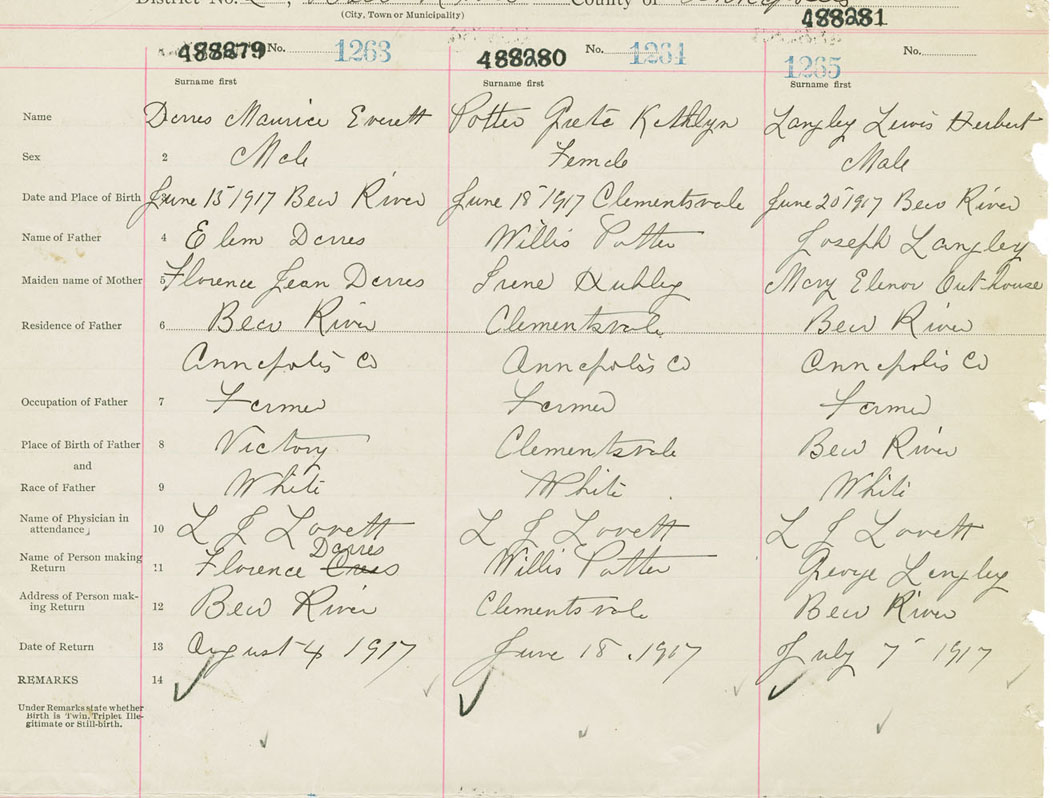 District No. 2, County of
(City, Town or Municipality)
488279 No. 1263 488280 No. 1264 488281 No. 1265
Surname first Surname first Surname first
Name Darres Maurice Everett Potter Greta Kathlyn Langley Lewis Herbert
Sex 2 Male Female Male
Date and Place of Birth 3 June 15 1917 Bear River June 18 1917 Clementsvale June 20 1917 Bear River
Name of Father 4 Elam Darres Willis Potter Joseph Langley
Maiden name of Mother 5 Florence Jean Darres Irene Hubley Mary Elenor Outhouse
Residence of Father 6 Bear River Clementsvale Bear River
Annapolis Co Annapolis Co Annapolis Co
Occupation of Father 7 Farmer Farmer Farmer
Place of Birth of Father 8 Victory Clementsvale Bear River
and
Race of Father 9 White White White
Name of Physician in
attendance 10 L J Lovett L J Lovett L J Lovett
Darres
Name of Person making
Return 11 Florence Willis Potter George Langley
Address of Person mak-
ing Return 12 Bear River Clementsvale Bear River
Date of Return 13 August 4 1917 June 18, 1917 July 7 1917
REMARKS 14
Under Remarks state whether
Birth is Twin, Triplet, Ille-
gitimate or Still-birth.